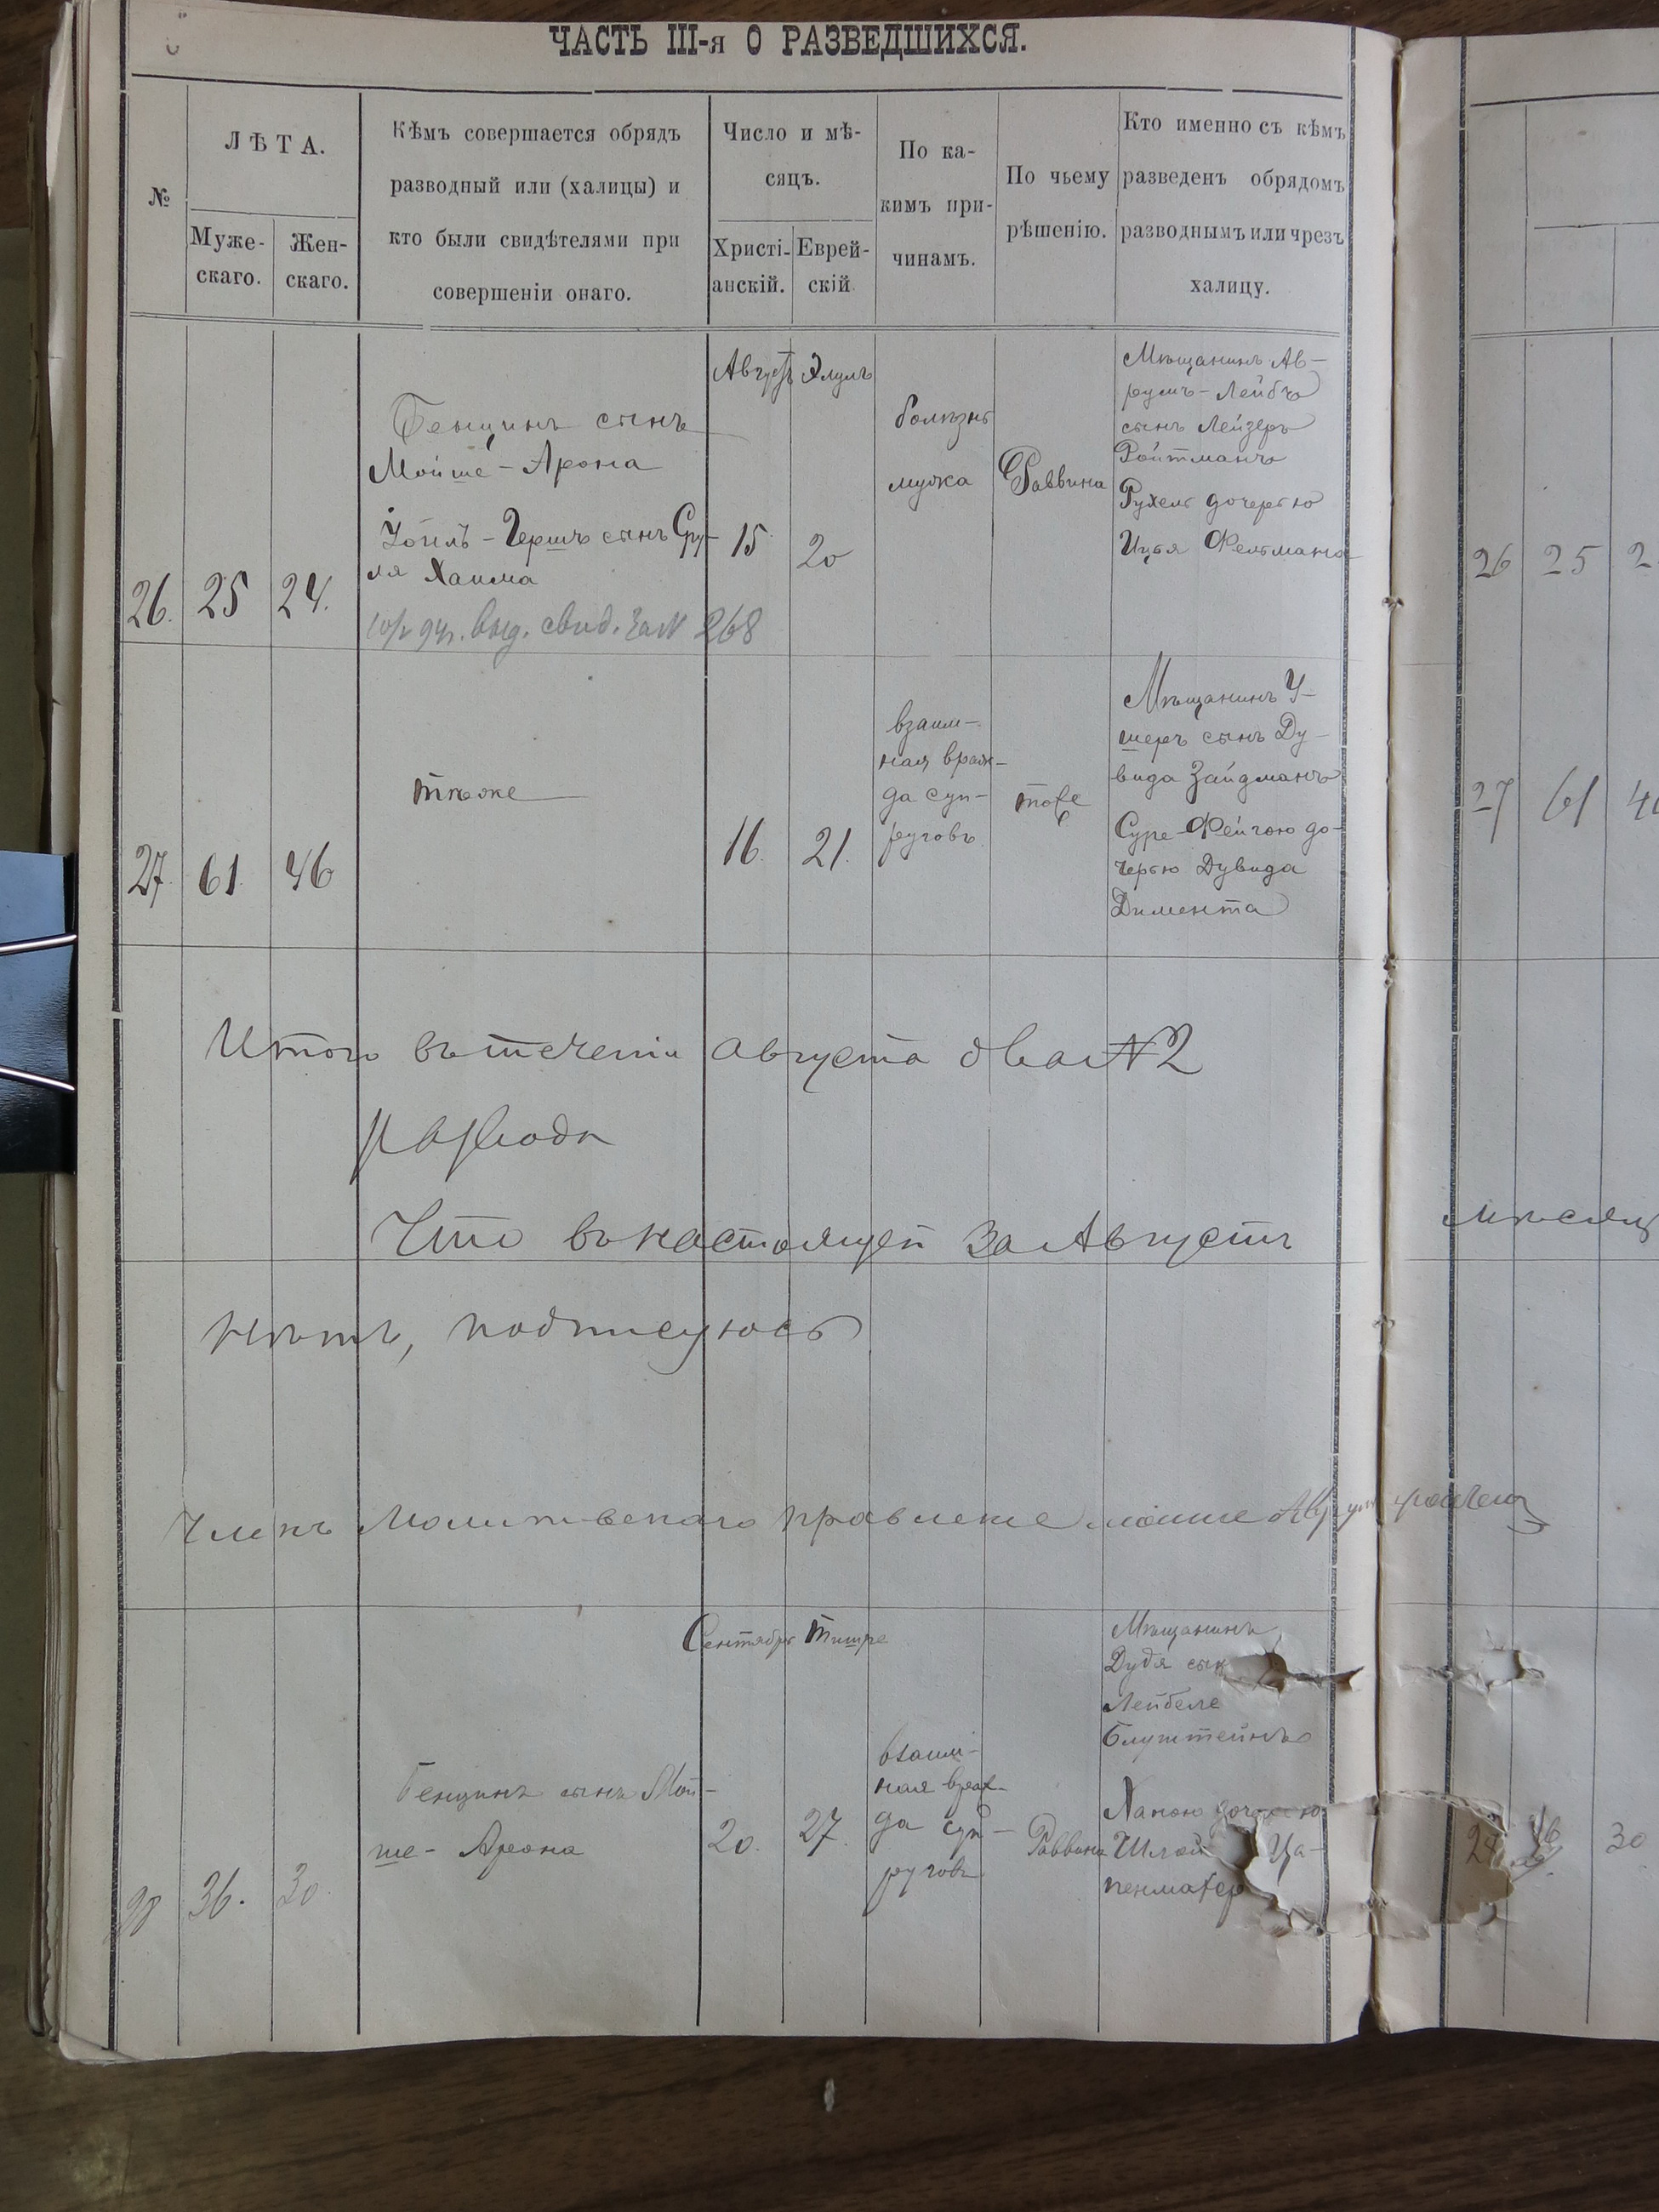 ЧАСТЬ III-я О РАЗВЕДШИХСЯ.
№
ЛѢТА.
Муже-
скаго.
Жен-
скаго.
Кѣмъ совершается обрядъ
разводный или (халицы) и
кто были свидѣтелями при
совершеніи онаго.
Число и мѣ-
сяцъ.
Христі-
анскій.
Еврей-
скій
По ка-
кимъ при-
чинамъ.
По чьему
рѣшенію.
Кто именно съ кѣмъ
разведенъ обрядомъ
разводнымъ или чрезъ
халицу.
26. 25 24.
Бенцинъ сынъ
Мойше-Арона
Іойлъ-Гершъ сынъ Сру-
ля Хаима
выд. свид. за N 268
Августъ Элулъ
15 20
болѣзнь
мужа
Раввина
Мѣщанинъ Ав-
румъ-Лейбъ
сынъ Лейзеръ
Ройтманъ
Рухель дочерью
Ицья Фельтмана
26 25 2
27. 61. 46
тѣже
16. 21.
взаим-
ная враж-
да суп-
руговъ
тоже
Мѣщанинъ У-
шеръ сынъ Ду-
вида Зайдманъ
Суре-Фейгою до-
черью Дувида
Димента
27 61 4
Итого въ теченіи Августа два N 2
развода
Что въ настоящей за Августъ мѣсяцъ
нѣтъ, подписуюсь
Членъ Молитвенаго правленіе мошше Аврум
Сентябрь Тишре
28 36. 30
Бенцинъ сынъ Мой-
ше-Арона
20. 27.
взаим-
ная враж-
да суп-
руговъ
Раввина
Мѣщанинъ
Дудя сын
Лейбеле
Блуштейнъ
Ханою дочерью
Шлой Ца-
пенмахер
30